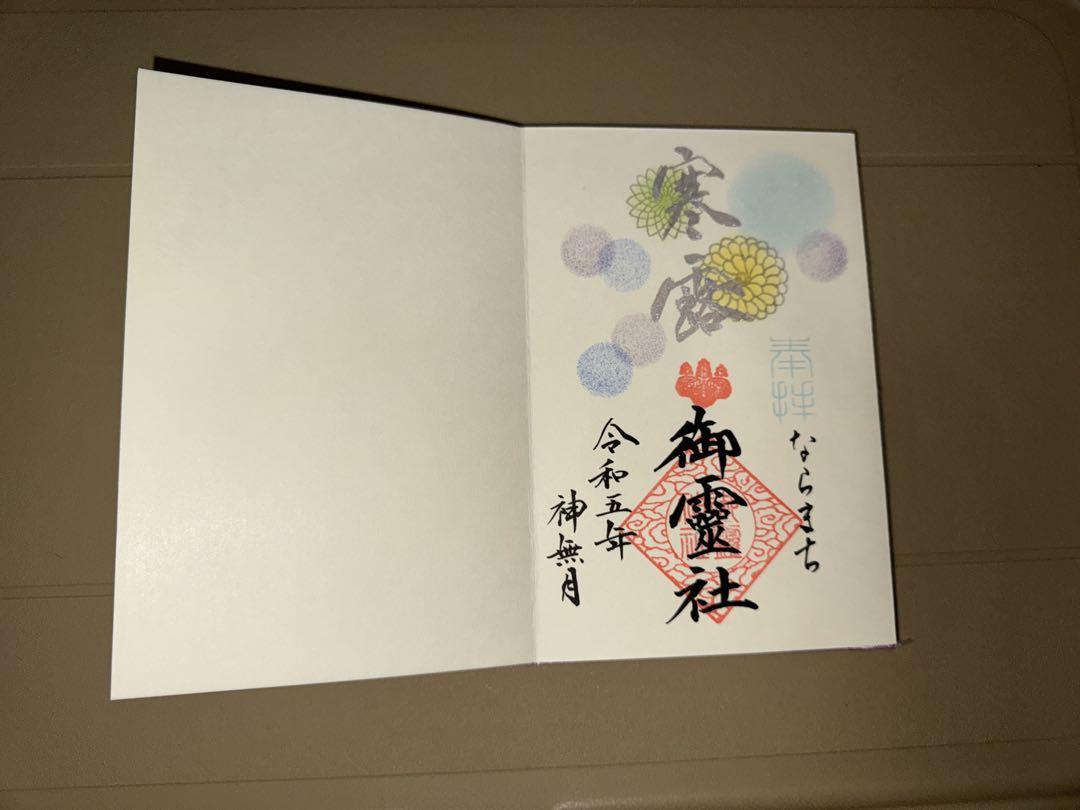 寒露
奉拝
ならまち
御靈社
令和五年
神無月